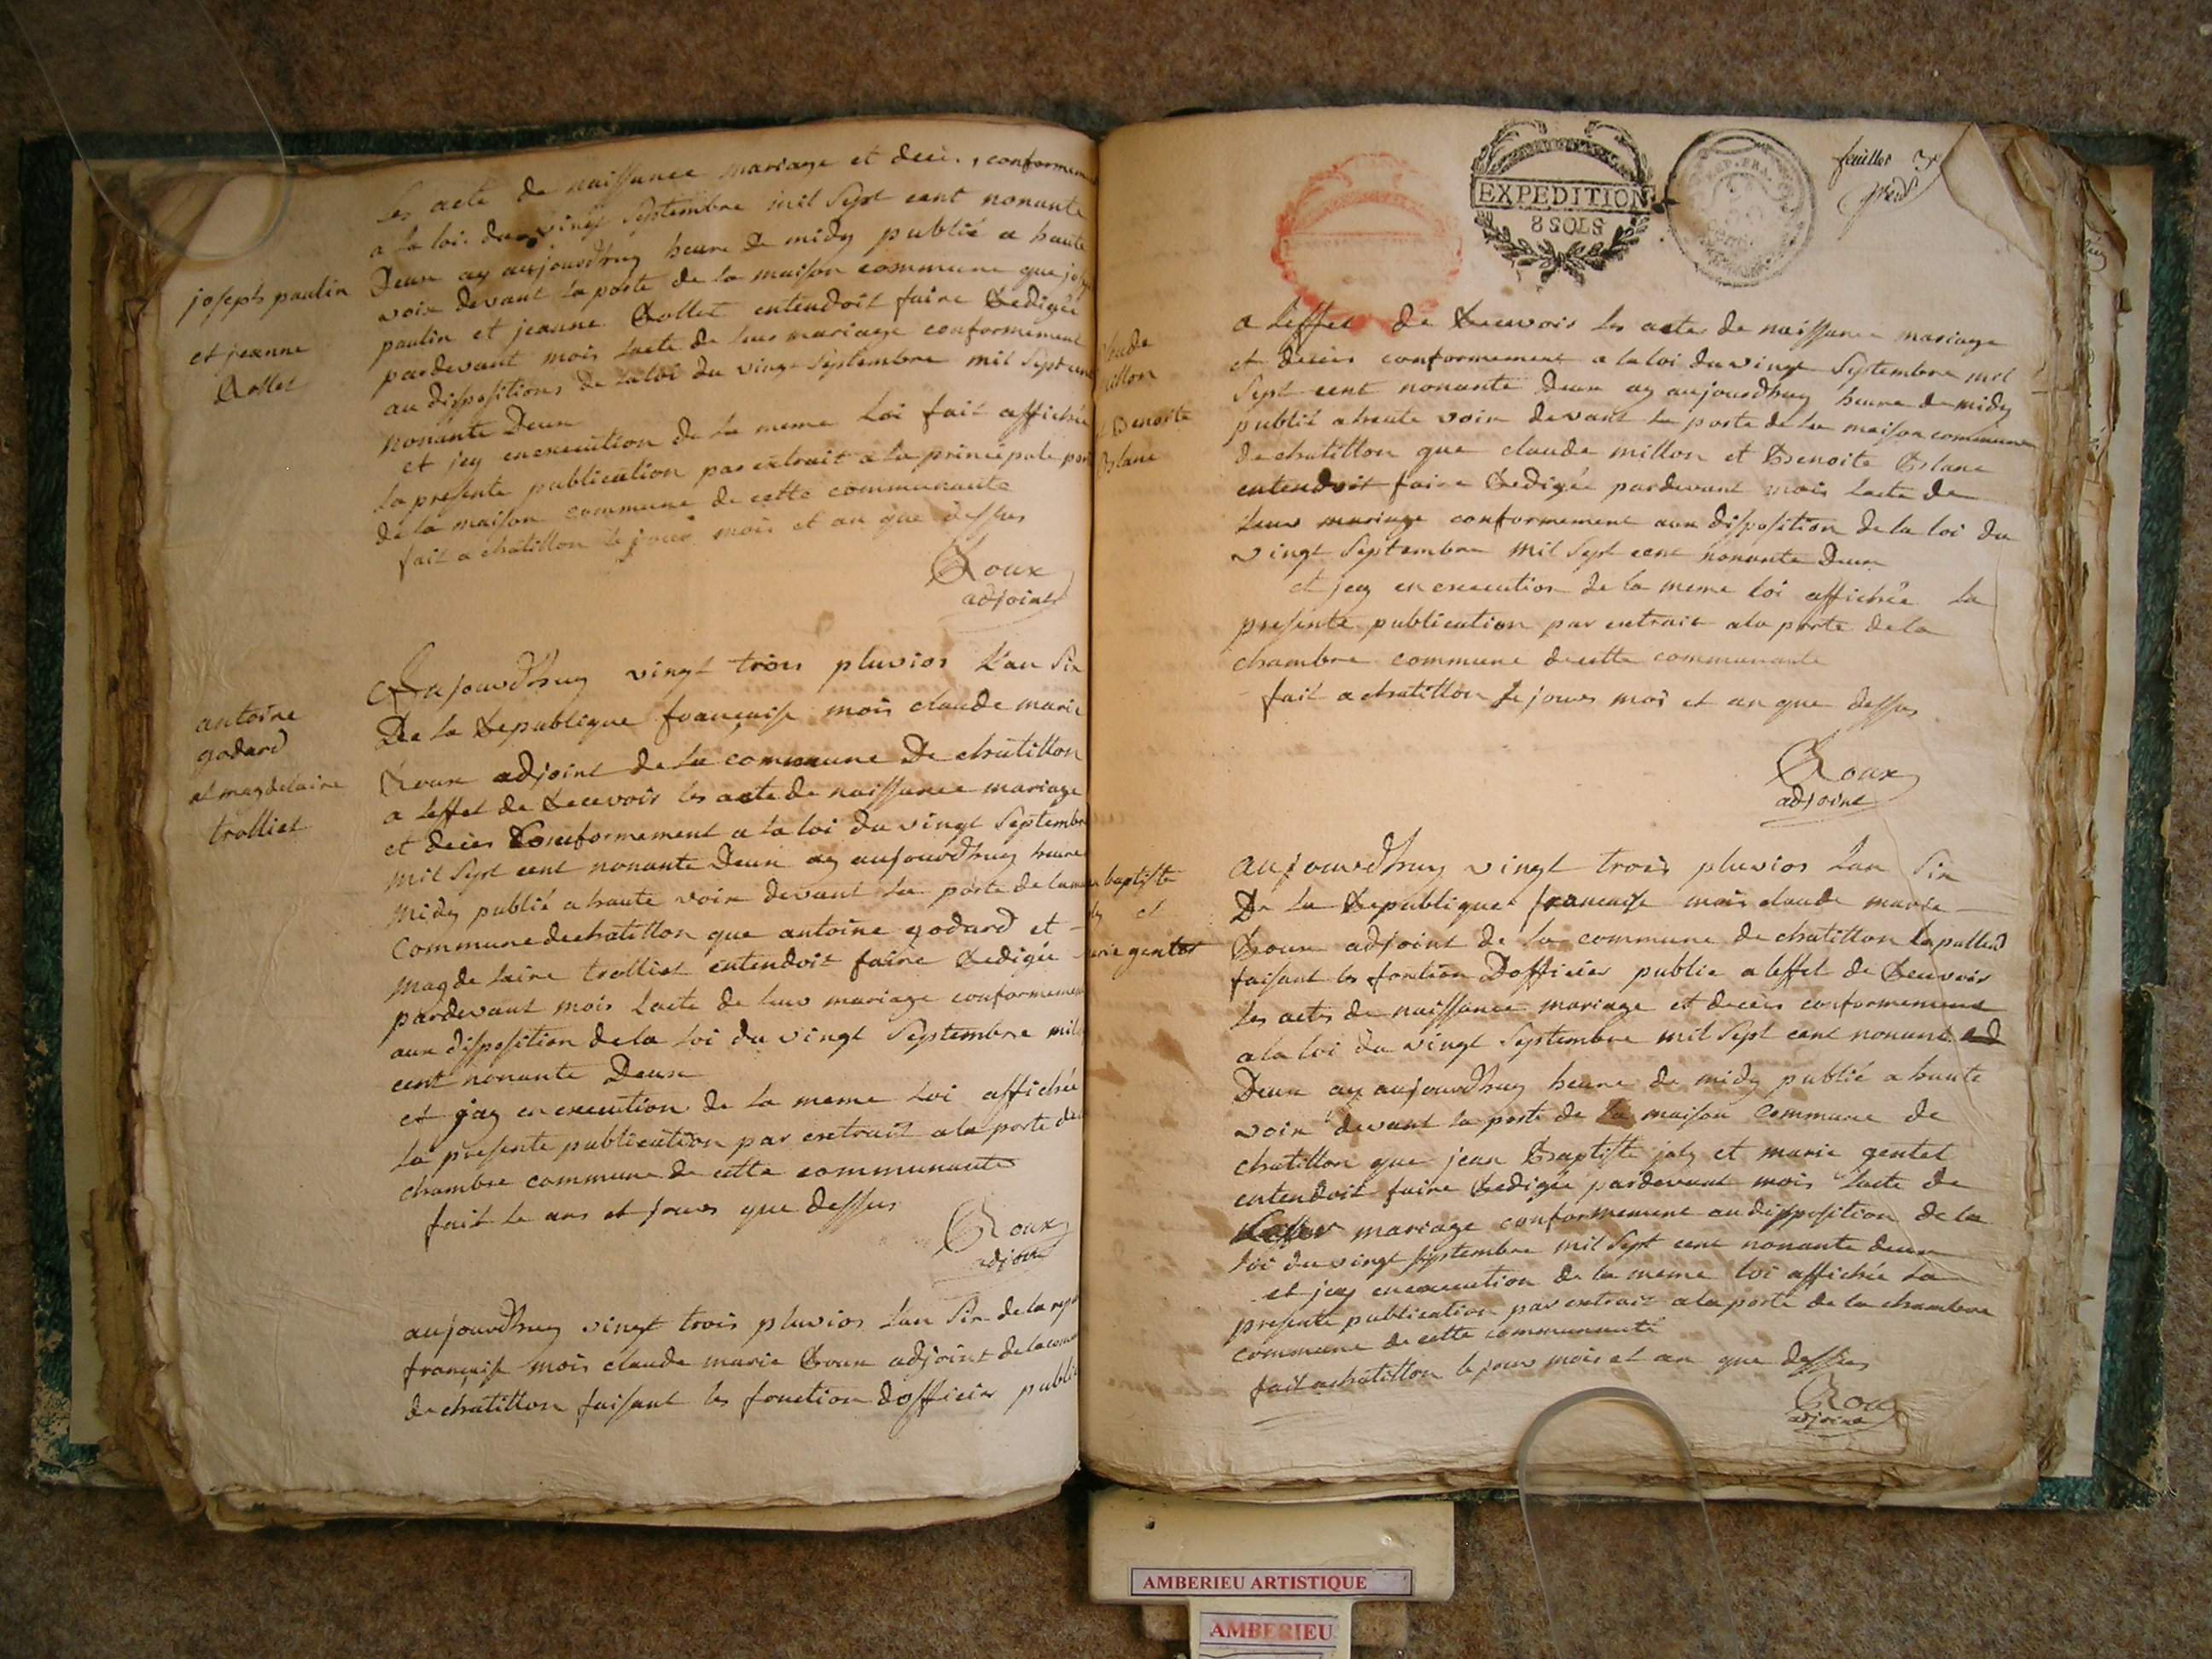 joseph paulin
et jeanne
Rollet
Les acte de naissance mariage et deces, conformem
a la loi du vingt Septembre mil Sept cent nonante
Deux ay aujourdhuy heure de midy publié a haute
voix devant la porte de la maison commune que
paulin et jeanne Rollet entendoit faire Redigée
pardevant mois lacte de leur mariage conformement
au dispositions de la loi du vingt Septembre mil Sept cent
nonante Deux
et jey en execution de la meme Loi fait affichée
la presente publication par extrait a la principale por
de la maison commune de cette communaute
fait a chatillon le jour mois et an que dessus
Roux
adjoint
antoine
godard
et magdelaine
trolliet
Aujourdhuy vingt trois pluvios l'an Six
De la Republique française mois claude marie
Roux adjoint de la commune De chatillon
a leffet de Recevoir les acte de naissance mariage
et deces Conformement a la loi du vingt Septembre
mil Sept cent nonante Deux ay aujourdhuy heure
midy publié a haute voix devant la porte de la
Commune de chatillon que antoine godard et
magdelaine trolliet entendoit faire Redigée
pardevant mois lacte de leur mariage conformemen
aux disposition de la loi du vingt Septembre mil
cent nonante Deux
et jay en execution de la meme Loi affichée
la presente publication par extrait a la porte de
chambre commune de cette communaute
fait le ans et jours que dessus
Roux
adjoin
aujourdhuy vingt trois pluvios l'an Six de la rep
française mois claude marie Roux adjoint de la com
de chatillon faisant les fonction dofficier public
EXPEDITION
8 SOLS
REP. FRA.
feuillet
aude
illon
Benoite
Bslane
a leffet de Recevoir les acte de naissance mariage
et deces conformement a la loi du vingt Septembre mil
Sept cent nonante Deux ay aujourdhuy heure de midy
publié a haute voix devant la porte de la maison commune
de chatillon que claude millon et Benoite Bslane
entendoit faire Redigée pardevant mois lacte de
leur mariage conformement aux disposition de la loi du
vingt Septembre mil Sept cent nonante Deux
et jey en execution de la meme loi affichée la
presente publication par extrait a la porte de la
chambre commune de cette communaute
fait a chatillon le jours mois et an que dessus
Roux
adjoint
baptiste
et
marie gentet
aujourdhuy vingt trois pluvios l'an Six
De la Republique française mois claude marie
Roux adjoint de la commune de chatillon lapallud
faisant les fontion Dofficier public a leffet de Recevoir
les actes de naissance mariage et deces conformement
a la loi du vingt Septembre mil Sept cent nonant
Deux ay aujourdhuy heure de midy publié a haute
voix devant la porte de la maison commune de
chatillon que jean Baptiste joly et marie gentet
entendoit faire Redigée pardevant mois lacte de
mariage conformement au disposition de la
loi du vingt Septembre mil Sept cent nonante deux
et jey en execution de la meme loi affichée la
presente publication par extrait a la porte de la chambre
commune de cette communauté
fait a chatillon le jour mois et an que dessus
Roux
adjoint
AMBERIEU ARTISTIQUE
AMBERIEU